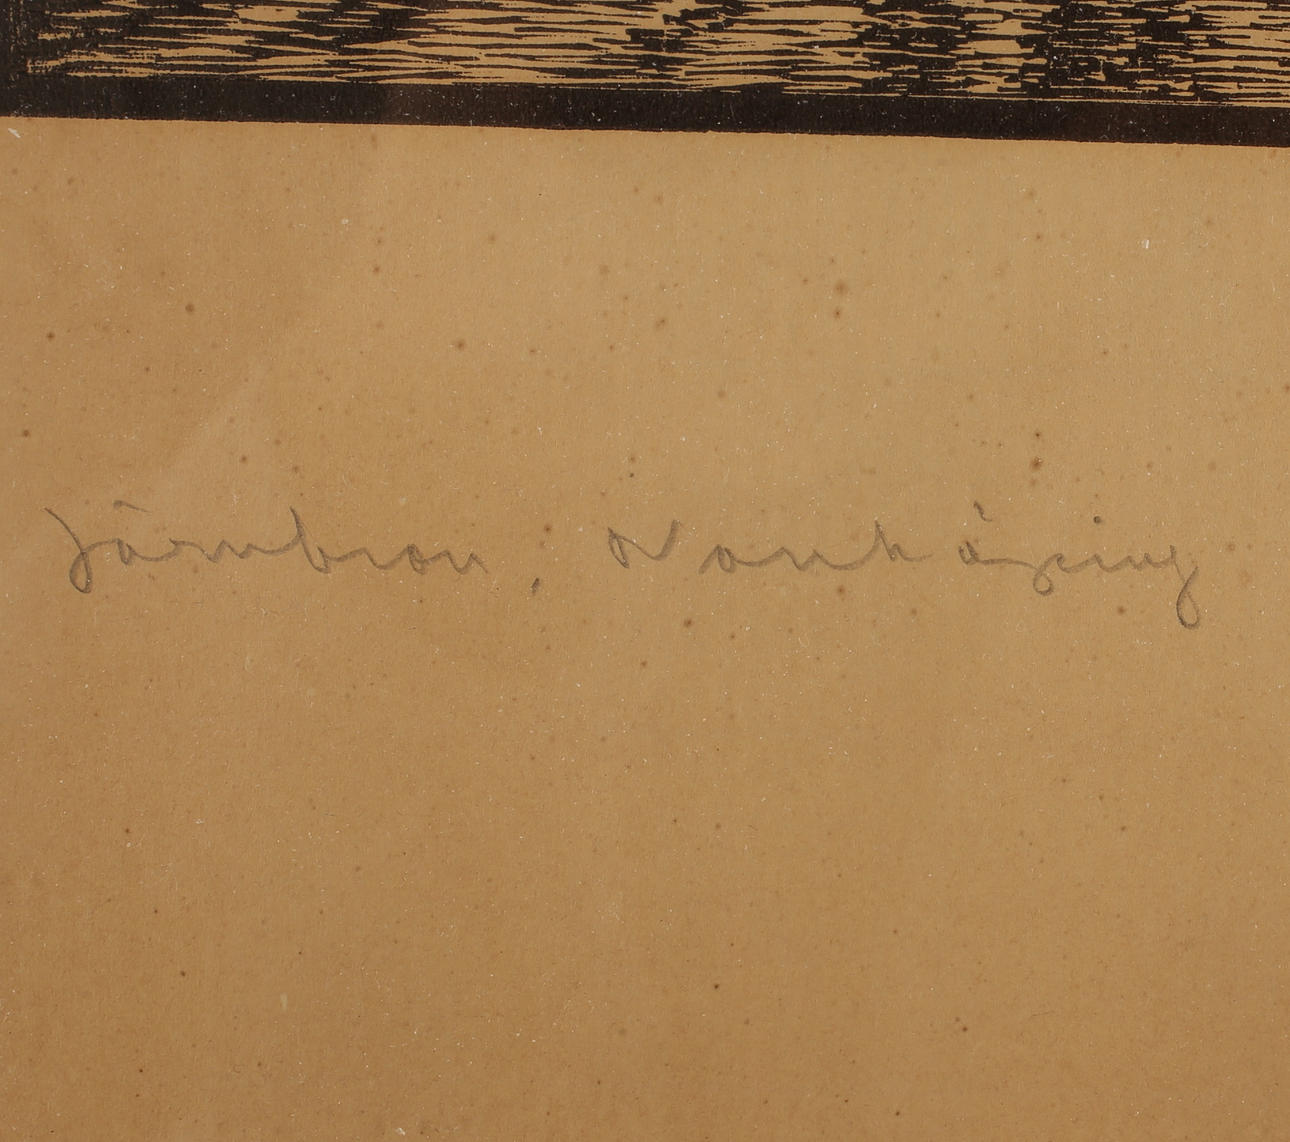 Järnbron, Norrköping